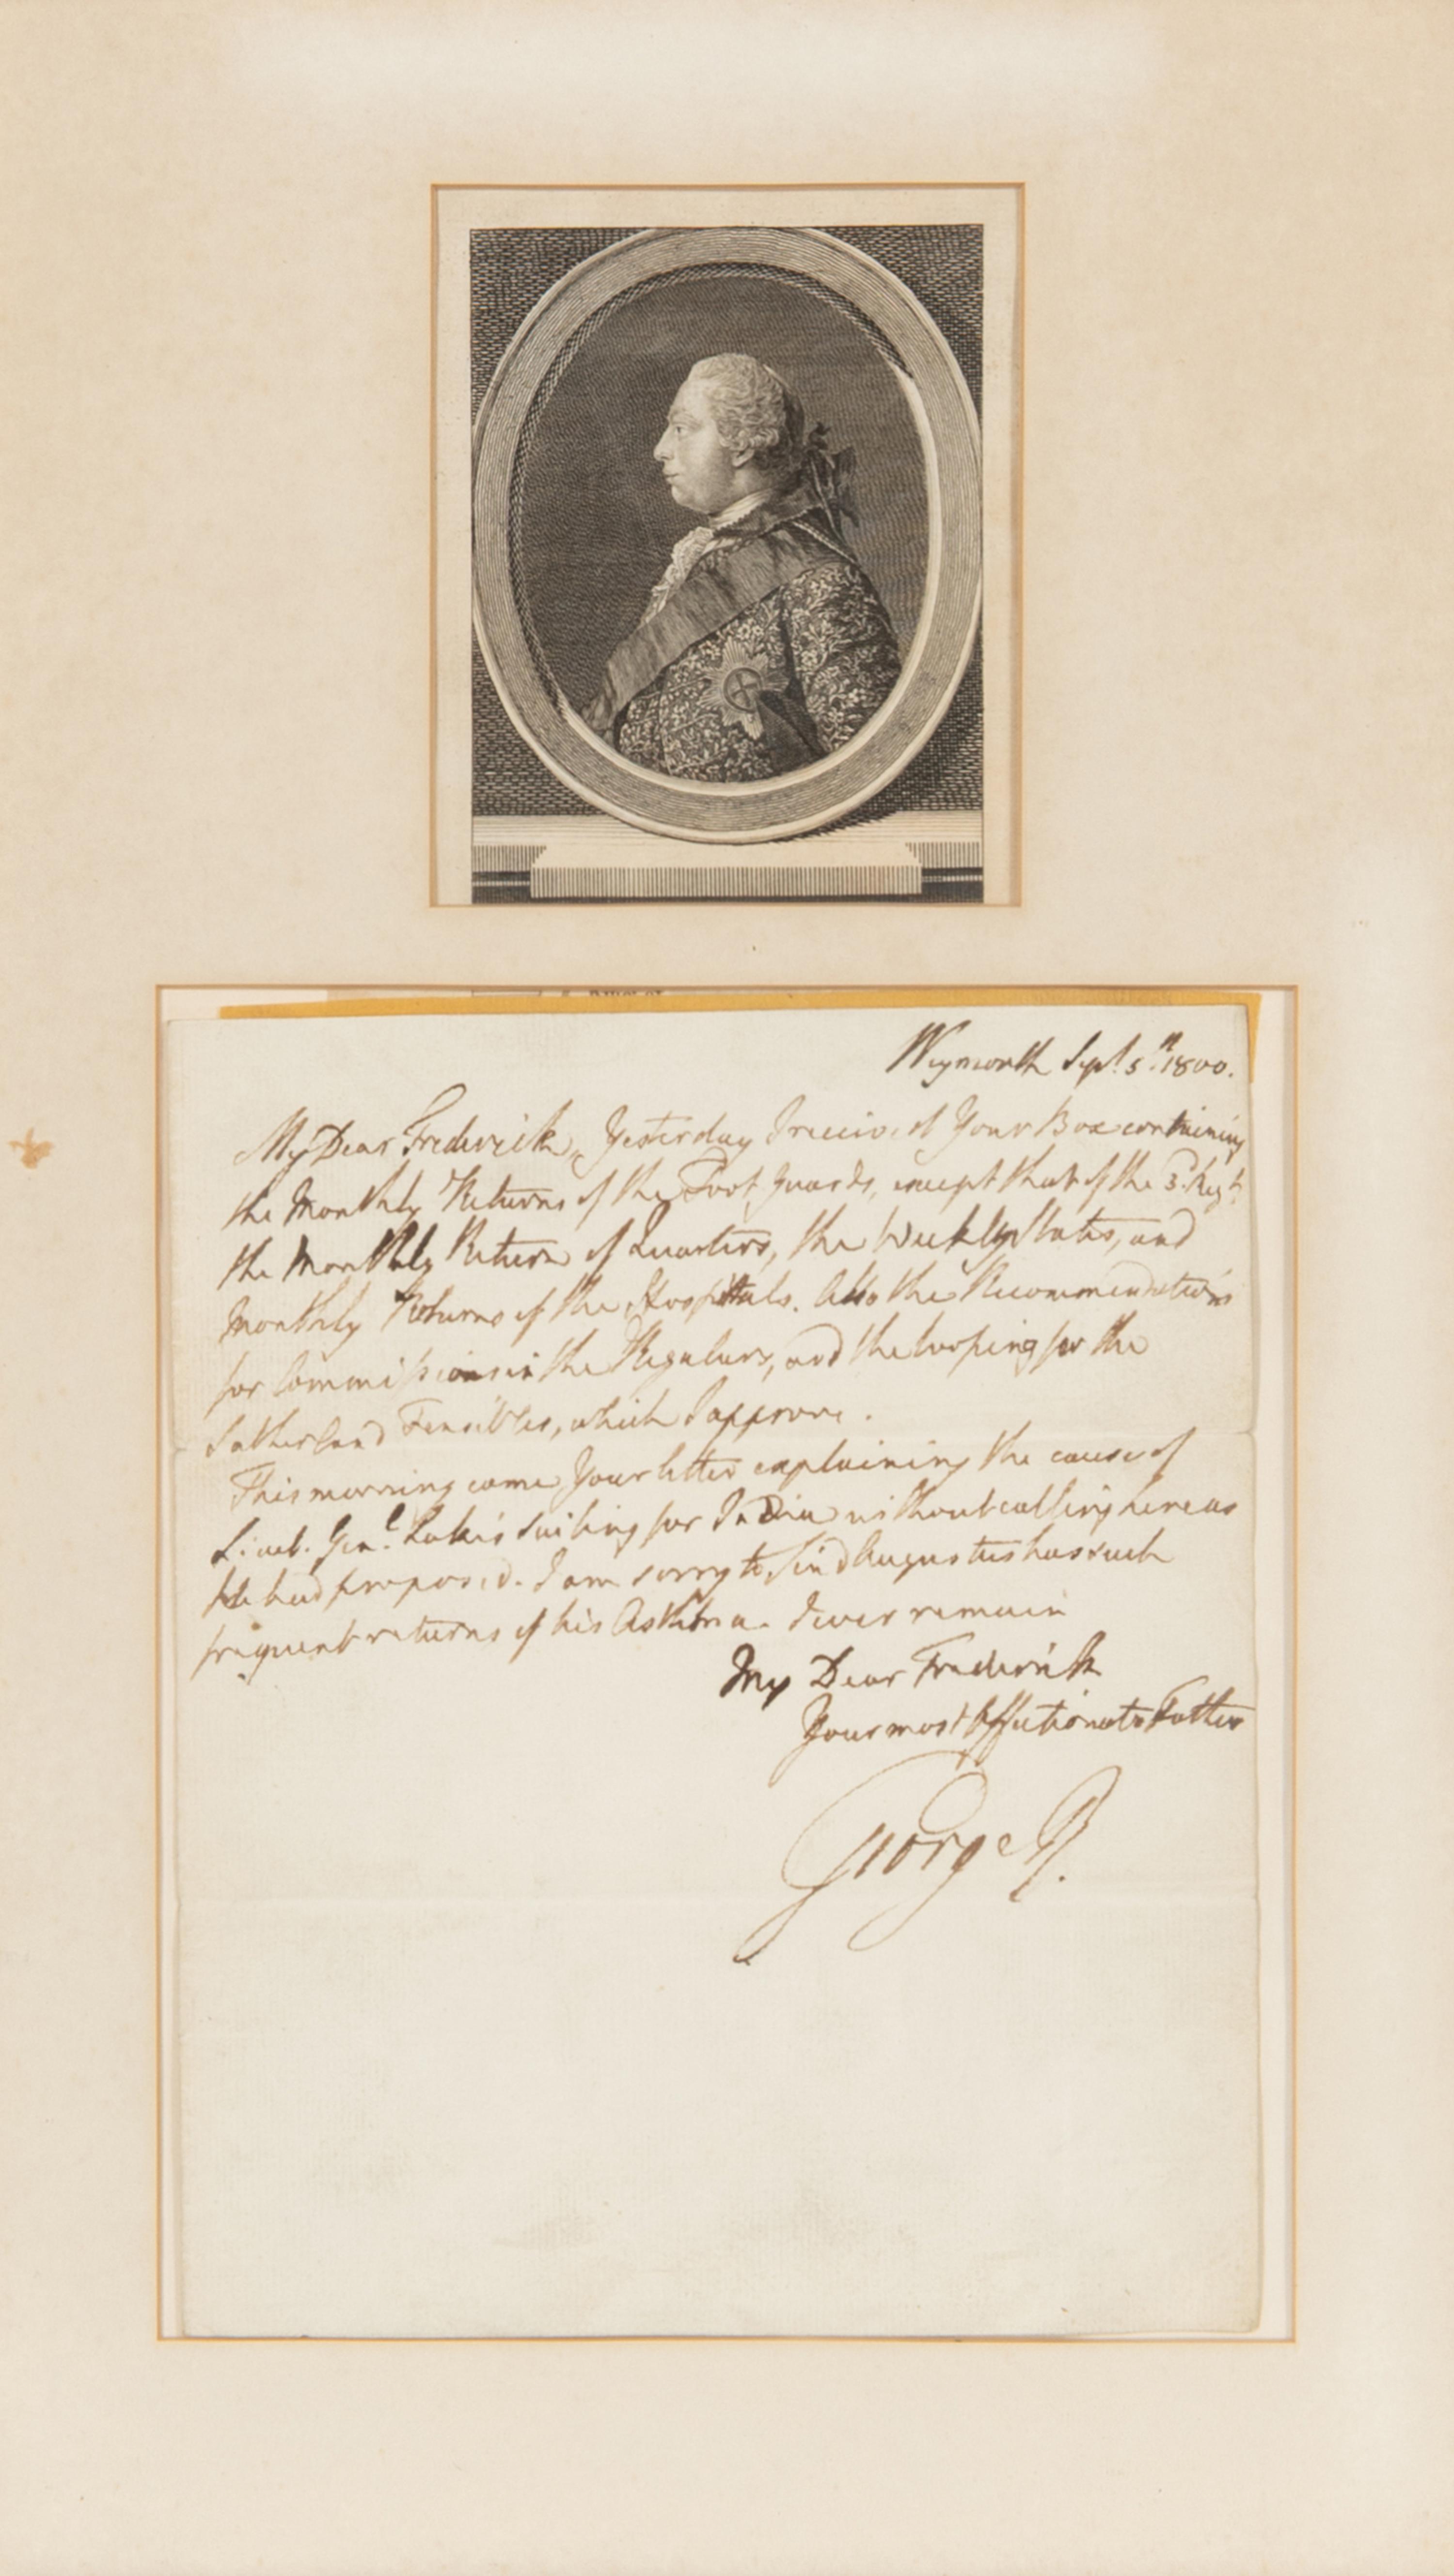 Weymouth Sept. 5th. 1800.
My Dear Frederick, Yesterday I received Your Box containing
the Monthly Returns of the Foot Guards, except that of the 3. Regt.
the Monthly Return of Quarters, the Weekly States, and
Monthly Returns of the Hospitals. Also the Recommendations
for Commissions in the Regulars, and the for the
Sutherland Fencibles, which I approve.
This morning came Your letter explaining the cause of
Lieut. Genl. Lake's sailing for India without calling here as
He had proposed. I am sorry to find Augustus has such
frequent returns of his Asthma. I ever remain
My Dear Frederick
Your most Affectionate Father
George R.